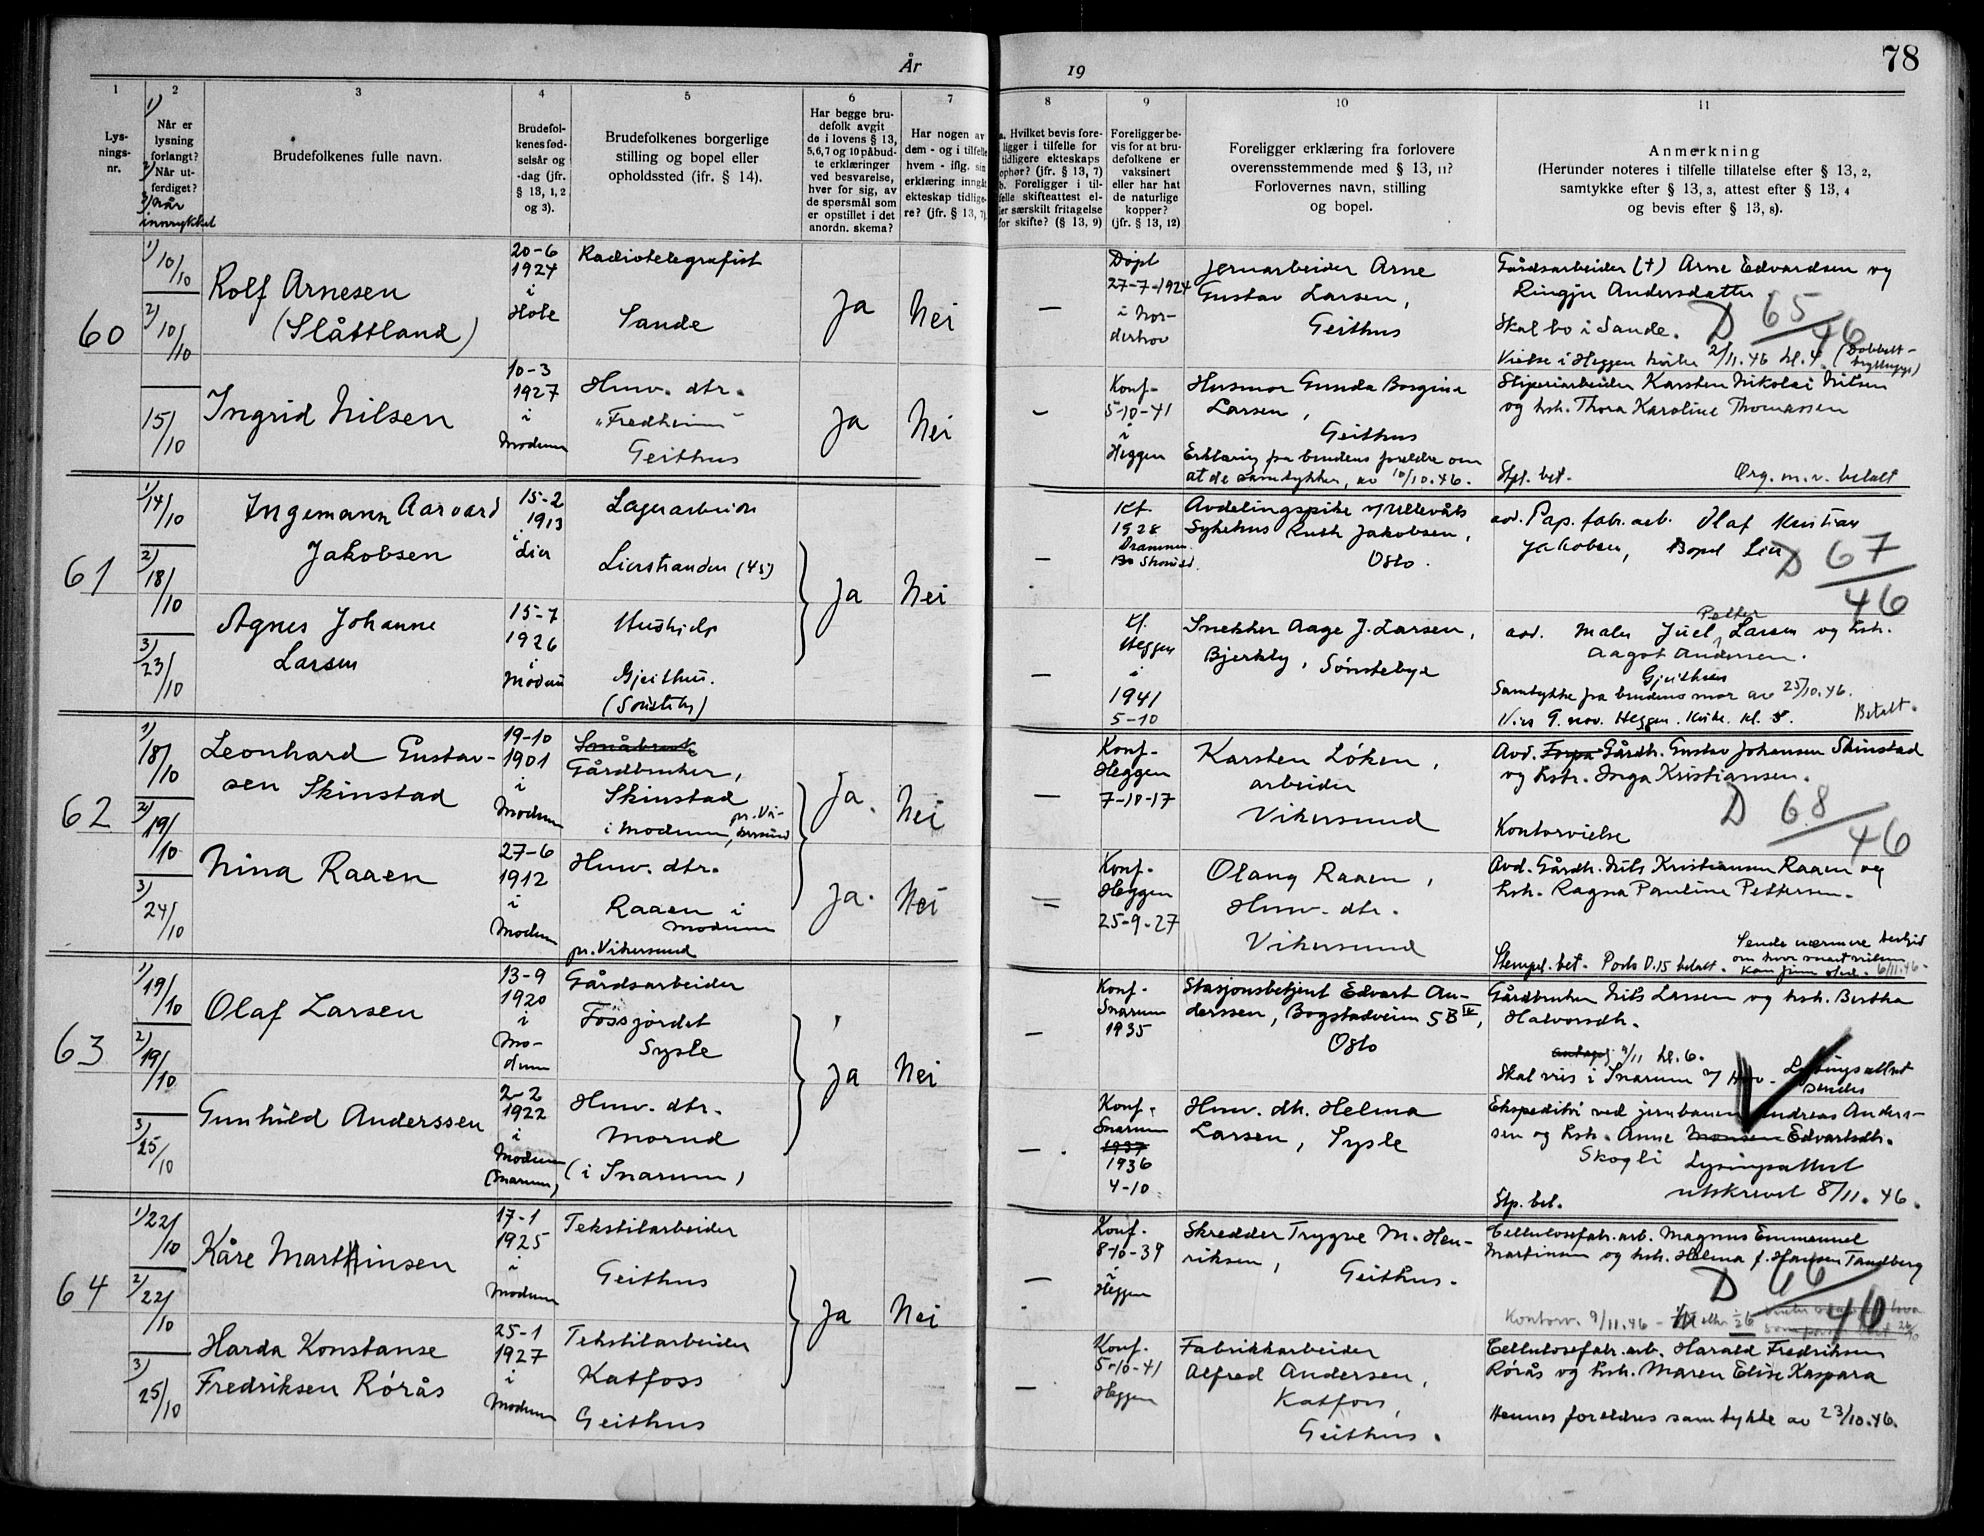 78
År
19
1
2
3
4
5
6
7
8
9
10
11
Lys-
nings-
nr.
1)
Når er
lysning
forlangt?
2)
Når ut-
ferdiget?
3) Når
innrykket
Brudefolkenes fulle navn.
Brudefol-
kenes fød-
selsår og
-dag (jfr.
§ 13, 1, 2
og 3).
Brudefolkenes borgerlige
stilling og bopel eller
opholdssted (jfr. § 14).
Har begge bru-
defolk avgit
de i lovens § 13,
5,6,7 og 10 påbud-
te erklæringer
ved besvarelse,
hver for sig, av
de spørsmål som
er opstillet i det
anordn. skema?
Har nogen av
dem - og i tilfelle
hvem - iflg. sin
erklæring inngåt
ekteskap tidlige-
re? (jfr. § 13, 7).
a. Hvilket bevis fore-
ligger i tilfelle for
tidligere ekteskaps
ophør? (jfr. § 13, 7)
b. Foreligger i til-
felle skifteattest el-
ler særskilt fritagelse
for skifte? (§ 13, 9)
Foreligger be-
vis for at bru-
defolkene er
vaksinert
eller har hat
de naturlige
kopper?
(jfr. § 13, 12)
Foreligger erklæring fra forlovere
overensstemmende med § 13, 11?
Forlovernes navn, stilling
og bopel.
Anmerkning
(Herunder noteres i tilfelle tillatelse efter § 13, 2,
samtykke efter § 13, 3, attest efter § 13, 4
og bevis efter § 13, 8).
60
1) 10/10
2) 10/10
15/10
Rolf Arnesen
(Slåttland)
20-6
1924
i
Hole
Radiotelegrafist
Sande
Ja
Nei
—
Døpt
27-7-1924
i Nor-
derhov
Jernarbeider Arne
Gustav Larsen,
Geithus
Gårdsarbeider (+) Arne Edvardsen og
Ringju Andersdatter
Skal bo i Sande.
D 65/46
Vielse i Heggen kirke 2/11.46 kl. 4. (Dobbelt-
bryllup)
Ingrid Nilsen
10-3
1927
i
Modum
Hmv. dtr.
"Fredheim"
Geithus
Ja
Nei
—
Konf.
5-10-41
i
Heggen
Husmor Gunda Borgina
Larsen,
Geithus
Erklæring fra brudens foreldre om
at de samtykker, av 10/10.46.
Sliperiarbeider Karsten Nikolai Nilsen
og hstr. Thora Karoline Thomassen
Stpl. bet.
Org. m.v. betalt
61
1) 14/10
2) 18/10
3) 23/10
Ingemann Aarvard
Jakobsen
15-2
1913
i
Lier
Lagerarbeider
Lierstranden (45)
Ja
Nei
—
Kf.
1928
Drammen
Avdelingspike v/Ullevåls
Sykehus Ruth Jakobsen,
Oslo.
avd. Pap. fabr. arb. Olaf Kristian
Jakobsen, Bopel Lier
D 67/46
Agnes Johanne
Larsen
15-7
1926
i
Modum
Hushjelp
Gjeithus.
—
Kf.
Heggen
i
1941
5-10
Snekker Aage J. Larsen,
Bjerkly, Sønstebye
avd. Maler Juel Petter Larsen og hstr.
Aagot Andersen.
Gjeithus
Samtykke fra brudens mor av 25/10.46.
Vies 9. nov. Heggen Kirke. Kl. 5.
Betalt.
62
1) 18/10
2) 19/10
3) 24/10
Leonhard Gustav-
sen Skinstad
19-10
1901
i
Modum
Småbruk
Gårdbruker,
Skinstad
i Modum, pr. Vi-
kersund
Ja.
Nei
—
Konf.
Heggen
7-10-17
Karsten Löken,
arbeider
Vikersund
Avd. Gårdbr. Gustav Johansen Skinstad
og hstr. Inga Kristiansen.
D 68/46
Kontorvielse
Nina Raaen
27-6
1912
i
Modum
Hmv. dtr.
Raaen i
Modum
pr. Vikersund
Ja.
Nei
=
Konf.
Heggen
25-9-27
Olaug Raaen,
Hmv. dtr.
Vikersund
Avd. Gårdbr. Nils Kristiansen Raaen og
hstr. Ragna Pauline Pettersen.
Stempel. bet. Porto 0.15 betalt.
Sende nærmere beskjed
om hvor snart vielsen
kan finne sted. 6/11.46.
63
1) 19/10
2) 19/10
3) 25/10
Olaf Larsen
13-9
1920
i
Mo-
dum
Gårdsarbeider
Fossjordet
Sysle
Ja
Nei
—
Konf.
Snarum
1935
Stasjonsbetjent Edvart An-
derssen, Bogstadveien 5 B IV,
Oslo
Gårdbruker Nils Larsen og hstr. Bertha
Halvorsdtr.
9/11 kl. 6.
Skal vies i Snarum Lysingsattest
sendes
Gunhild Anderssen
2-2
1922
i
Modum
(Snarum)
Hmv. dtr.
Morud
(i Snarum)
—
Konf.
Snarum
1937
1936
4-10
Hmv. dtr. Helma
Larsen, Sysle
Ekspeditør ved jernbanen Andreas Anders-
sen og hstr. Anne Monsen Edvartsdtr.
Skogli Lysingsattest
utskrevet 8/11.46.
Stp. bet.
64
1) 22/10
2) 22/10
3) 25/10
Kåre Marthinsen
17-1
1925
i
Modum
Tekstilarbeider
Geithus
Ja
Nei
—
Konf.
8-10-39
i
Heggen
Skredder Trygve M. Hen-
riksen, Geithus.
Cellulosefabr. arb. Magnus Emmanuel
Martinsen og hstr. Helma f. Hansen Tandberg
D 66/46
Kontorv. 9/11.46
Harda Konstanse
Fredriksen Rörås
25-1
1927
i
Modum
Tekstilarbeider
Katfoss
Geithus
—
Konf.
5-10-41
Heggen
Fabrikkarbeider
Alfred Andersen,
Katfoss,
Geithus.
Cellulosefabr. arb. Harald Fredriksen
Rörås og hstr. Maren Elise Kaspara
Hennes foreldres samtykke av 23/10.46.